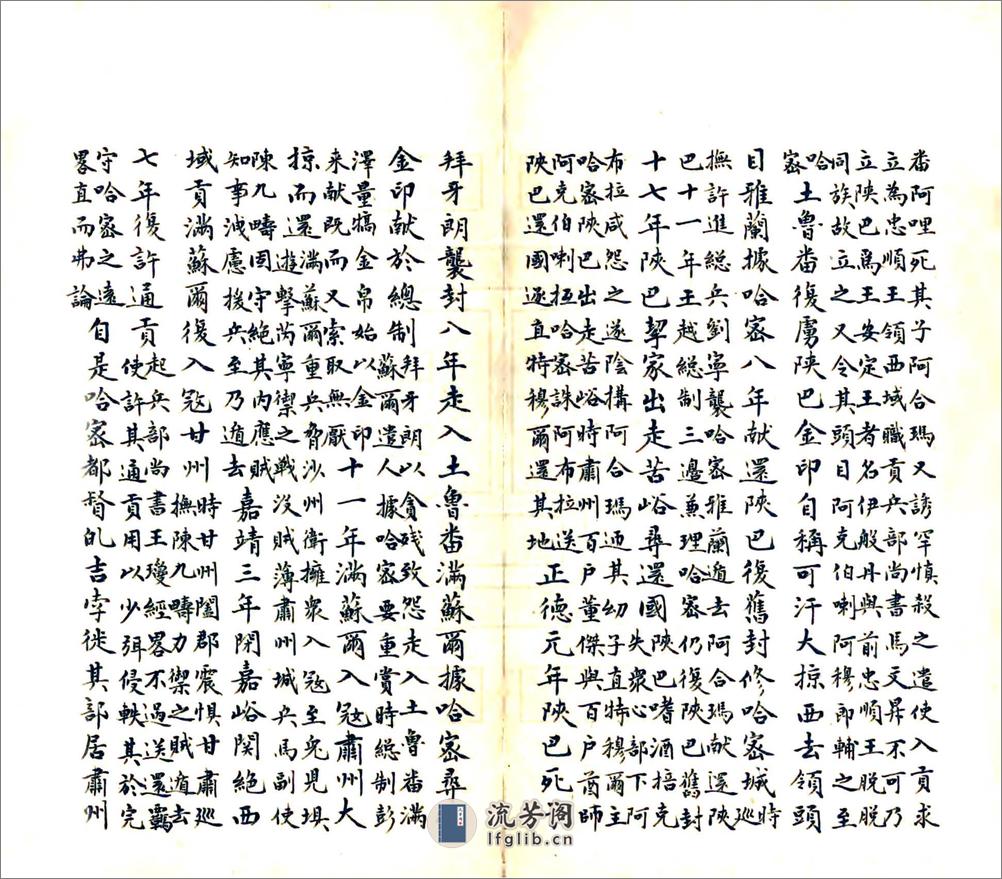 番阿哩死其子阿合瑪又誘罕慎殺之遣使入貢求
立為忠順王領西域職貢兵部尚書馬文昇不可乃
立陝巴爲王安定王者名伊般丹與前忠順王脫脫
同族故立之又令其頭目阿克伯喇阿穆郎輔之至
哈
密
土魯番復虜陝巴金印自稱可汗大掠西去領頭
目雅蘭據哈密八年献還陝巴復舊封修哈密城
時
巡
撫許進総兵劉寧襲哈密雅蘭遁去阿合瑪献還陝
巴十一年王越総制三邊兼理哈密仍復陝巴舊封
十七年陝巴挈家出走苦峪尋還國
陝巴嗜酒掊克
失衆心部下阿
布拉咸怨之遂陰搆阿合瑪迺其幼子直特穆爾主
哈密陝巴出走苦峪時肅州百户董傑與百户酋師
阿克伯喇抵哈密誅阿布拉送
陝巴還國逐直特穆爾還其地
正德元年陝巴死
拜牙朗襲封八年走入土魯番滿蘇爾據哈密尋
金印献於總制
拜牙朗以貪残致怨走入土魯番滿
蘇爾遣人據哈密要重賞時総制彭
澤量犒金帛始以金印
来献既而又索取無厭
十一年滿蘇爾入寇肅州大
掠而還
滿蘇爾重兵脅沙州衛擁衆入寇至兔兒垻
遊擊芮寧禦之戰没賊薄肅州城兵馬副使
陳九疇固守絕其内應賊
知事洩慮援兵至乃遁去
嘉靖三年閉嘉峪関絕西
域貢滿蘇爾復入寇甘州
時甘州闔郡震惧甘肅巡
撫陳九疇力禦之賊遁去
七年復許通貢
起兵部尚書王瓊經畧不過送還羈
使許其通貢用以少弭侵軼其於完
守哈密之遠
畧直而弗論
自是哈密都督癿吉孛徙其部居肅州
流芳阁
lfglib.cn